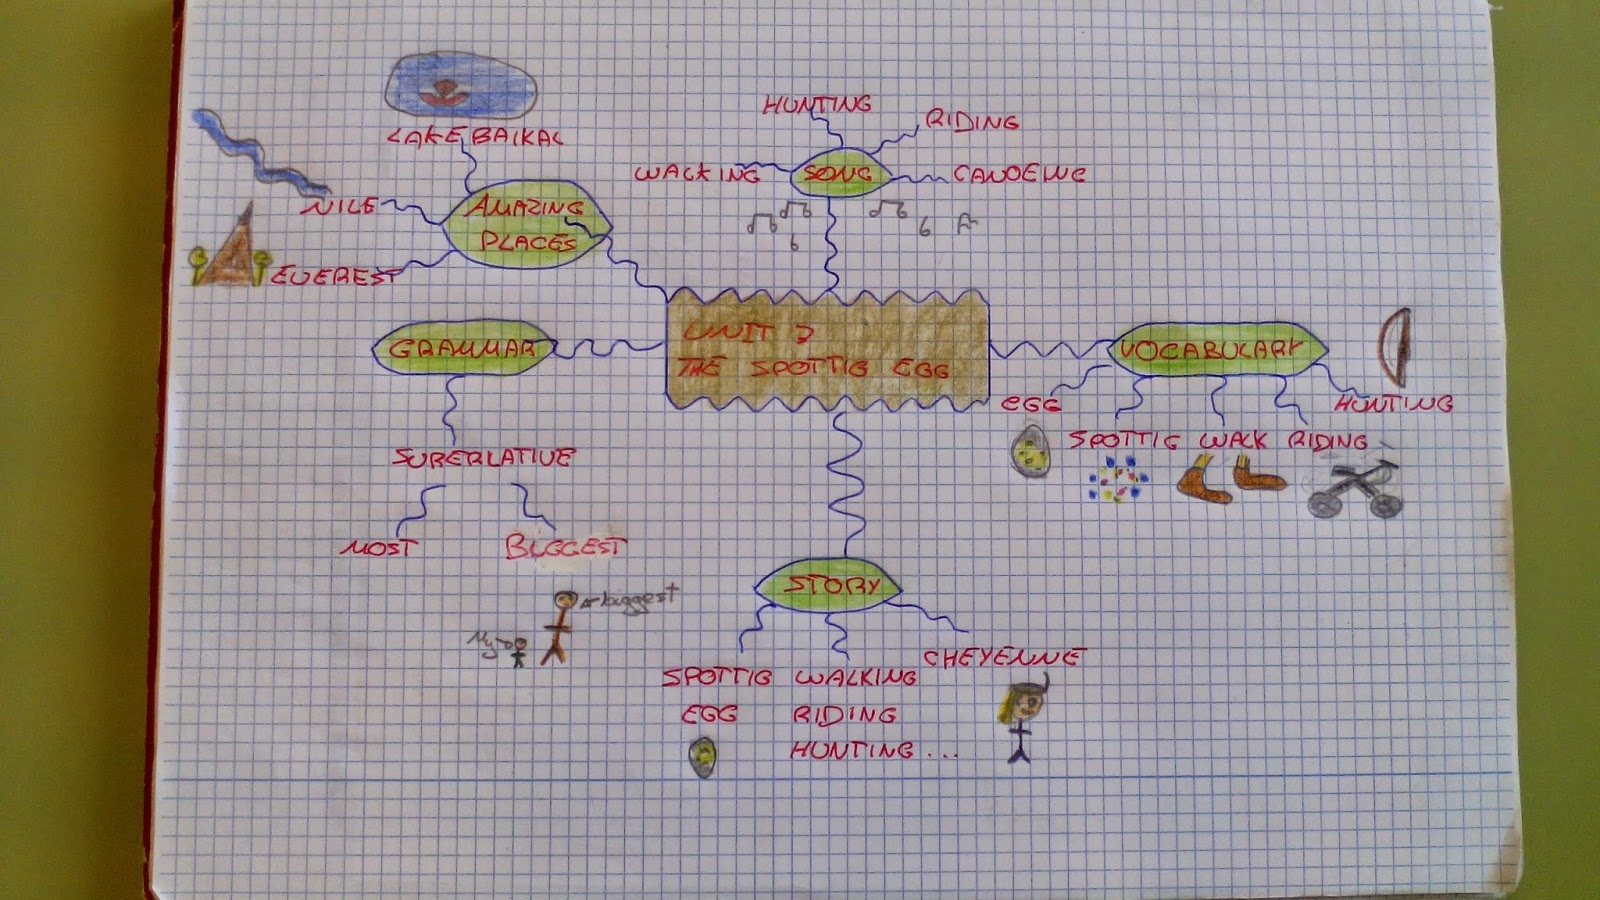 LAKE BAIKAL
NILE
EVEREST
AMAZING
PLACES
HUNTING
RIDING
WALKING
SONG
CANOEING
UNIT 7
THE SPOTTIG EGG
GRAMMAR
SUPERLATIVE
MOST
BIGGEST
biggest
My
VOCABULARY
EGG
SPOTTIG WALK RIDING
HUNTING
STORY
SPOTTIG
EGG
WALKING
RIDING
HUNTING...
CHEYENNE